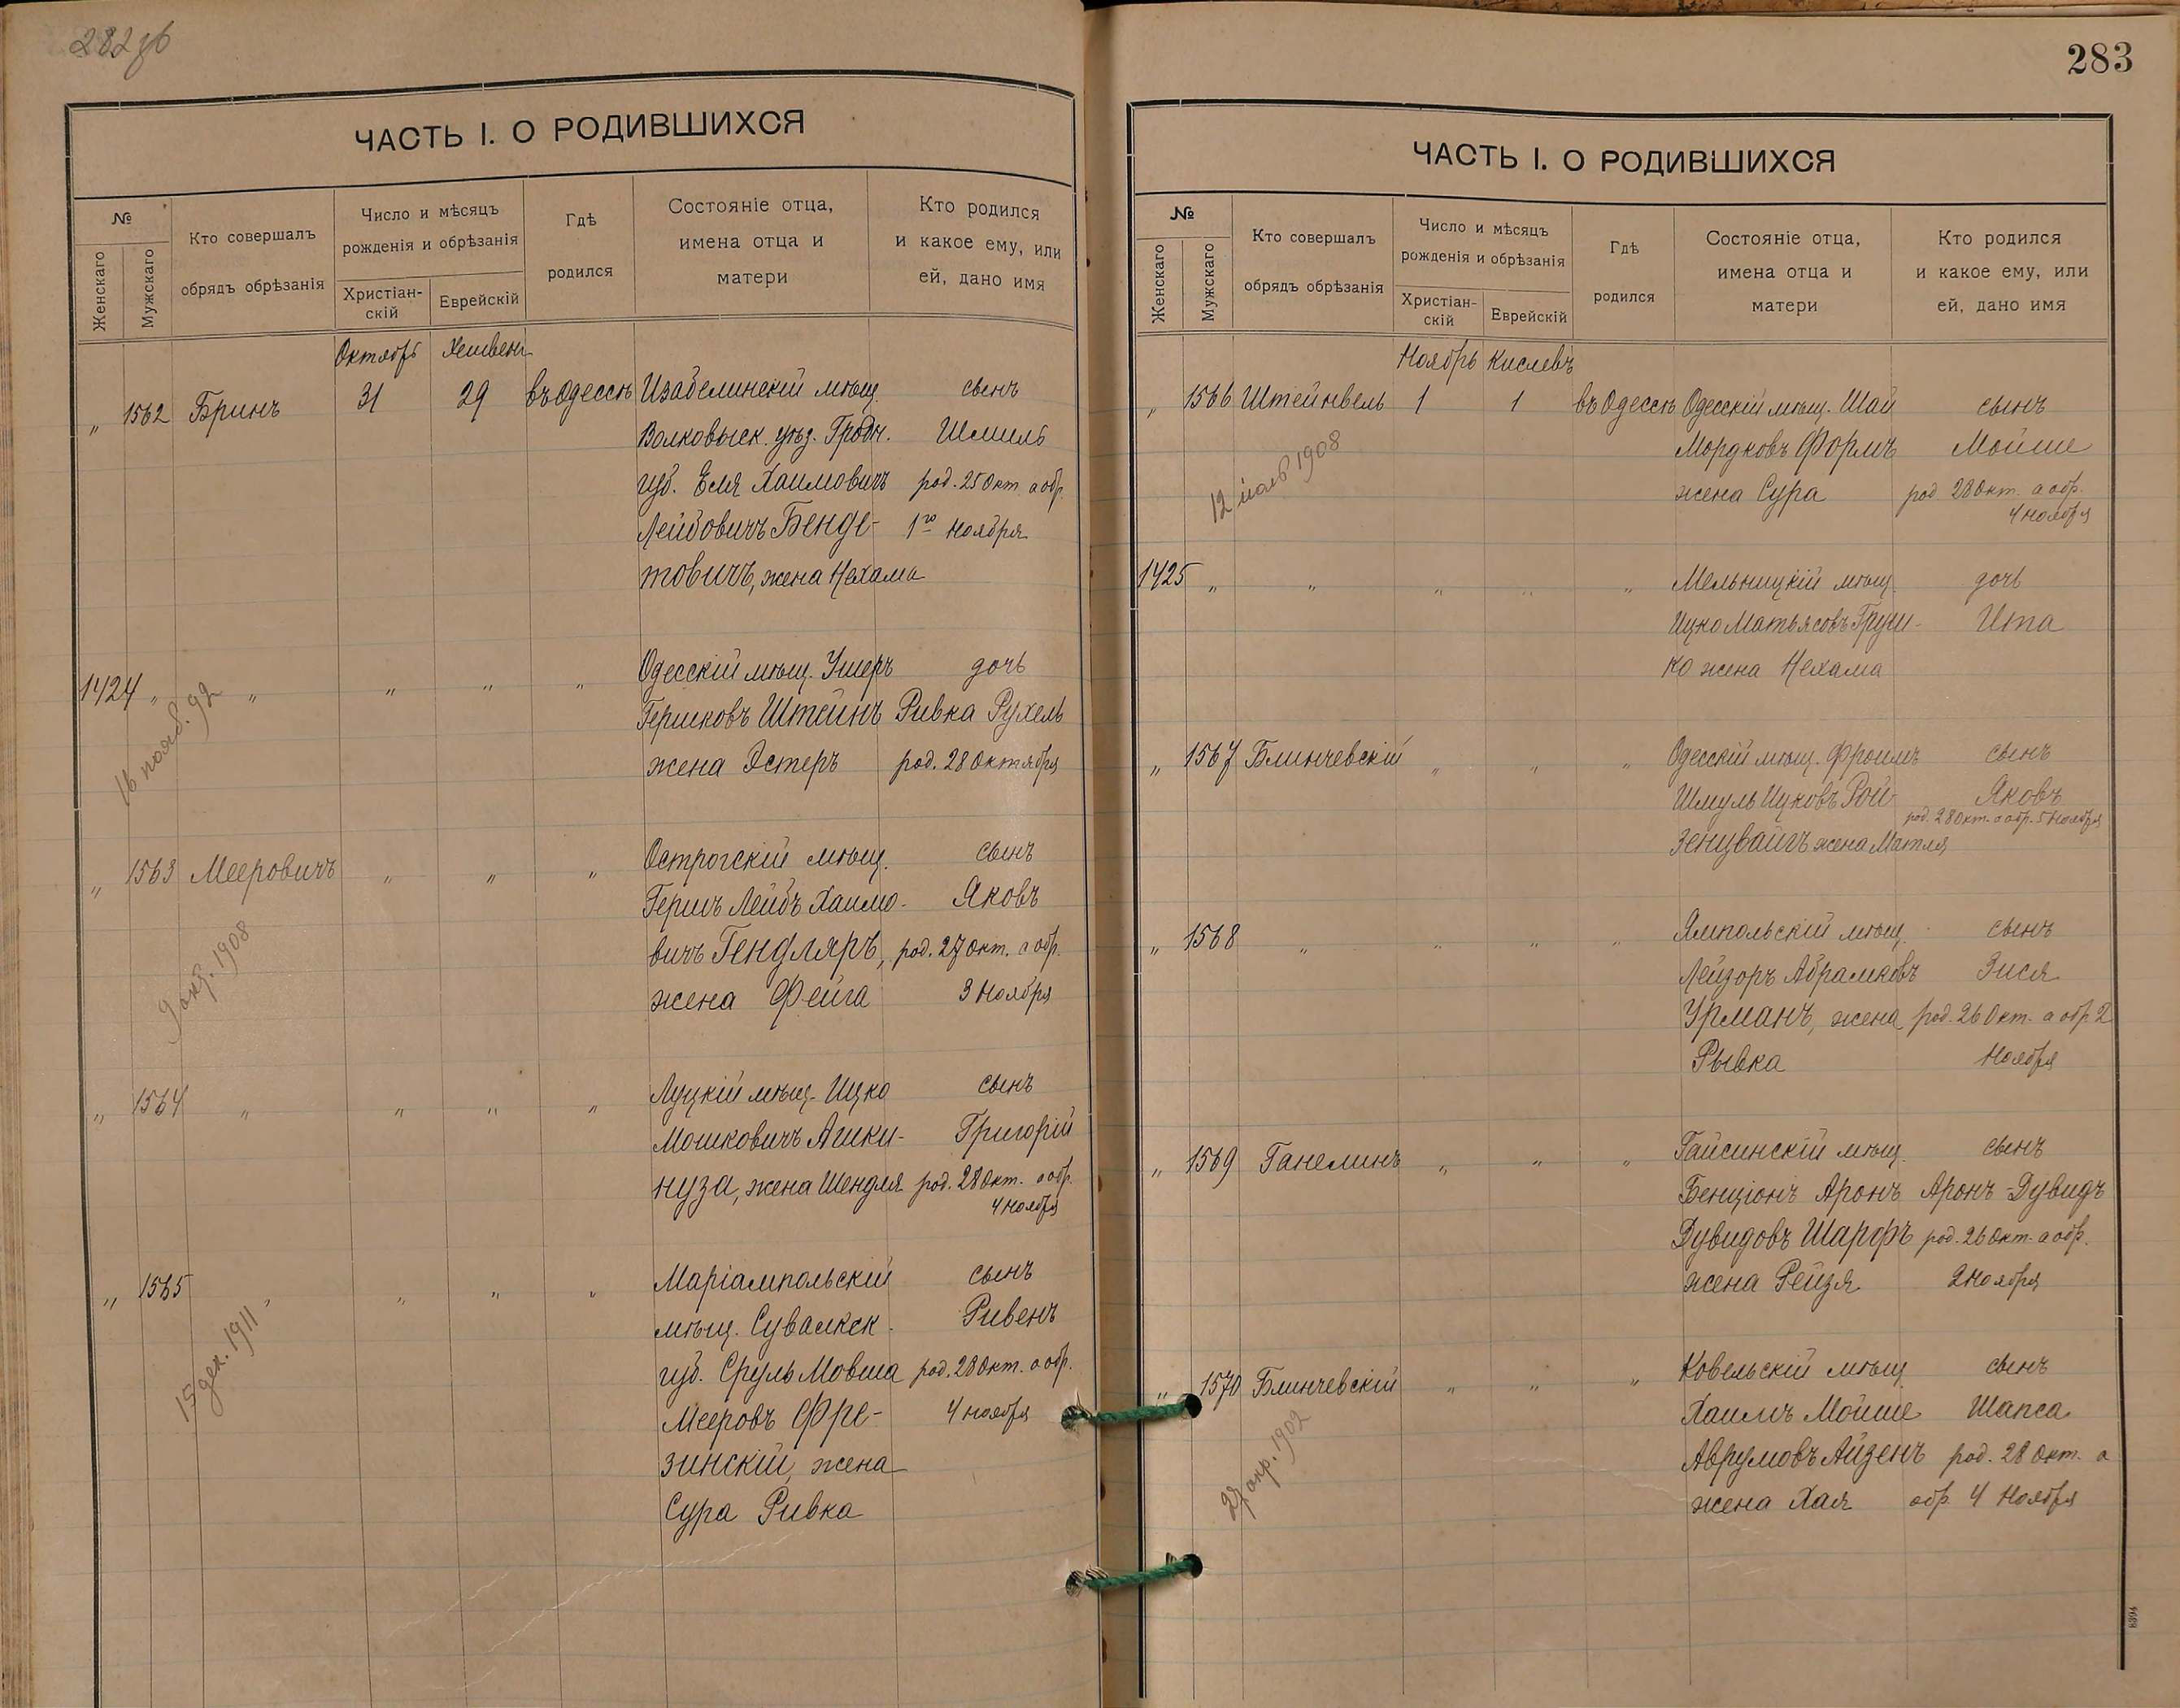 282 об
ЧАСТЬ I. О РОДИВШИХСЯ
№
Женскаго
Мужскаго
Кто совершалъ
обрядъ обрѣзанія
Число и мѣсяцъ
рожденія и обрѣзанія
Христіан-
скій
Еврейскій
Гдѣ
родился
Состояніе отца,
имена отца и
матери
Кто родился
и какое ему, или
ей, дано имя
Октябрь Хешвенъ
„ 1562 Бринъ 31 29 въ Одессѣ Изабелинскій мѣщ. сынъ
Волковыск. уѣз. Гродн. Шмиль
губ. Еля Хаимовичъ род. 25 Окт. а обр.
Лейбовичъ Бенде- 1го Ноября
товичъ, жена Нехама
1424 „ „ „ „ „ Одесскій мѣщ. Ушеръ дочь
Гершковъ Штейнъ Ривка Рухель
жена Эстеръ род. 28 Октября
16 нояб. 92
„ 1563 Мееровичъ „ „ „ Острогскій мѣщ. сынъ
Гершъ Лейбъ Хаимо- Яковъ
вичъ Гендляръ, род. 27 Окт. а обр.
жена Фейга 3 Ноября
1908
„ 1564 „ „ „ „ Луцкій мѣщ. Ицко сынъ
Мошковичъ Ашки- Григорій
нуза, жена Шендля род. 28 Окт. а обр.
4 Ноября
„ 1565 „ „ „ „ Маріампольскій сынъ
мѣщ. Сувалкск. Ривенъ
губ. Сруль Мовша род. 28 Окт. а обр.
Мееровъ Фре- 4 Ноября
зинскій, жена
Сура Ривка
15 дек. 1911
283
ЧАСТЬ I. О РОДИВШИХСЯ
№
Женскаго
Мужскаго
Кто совершалъ
обрядъ обрѣзанія
Число и мѣсяцъ
рожденія и обрѣзанія
Христіан-
скій
Еврейскій
Гдѣ
родился
Состояніе отца,
имена отца и
матери
Кто родился
и какое ему, или
ей, дано имя
Ноябрь Кислевъ
„ 1566 Штейнвель 1 1 въ Одессѣ Одесскій мѣщ. Шай сынъ
Мордковъ Формъ Мойше
жена Сура род. 28 Окт. а обр.
4 Ноября
12 1908
1425 „ „ „ „ „ Мельницкій мѣщ. дочь
Ицко Матьясовъ Груш- Ита
ко жена Нехама
„ 1567 Блинчевскій „ „ „ Одесскій мѣщ. Фроимъ сынъ
Шмуль Ицковъ Рой- Яковъ
род. 28 Окт. а обр. 5 Ноября
зенцвайгъ жена Матля
„ 1568 „ „ „ „ Ямпольскій мѣщ. сынъ
Лейзоръ Абрамковъ Зися
Урманъ, жена род. 26 Окт. а обр. 2
Рывка Ноября
„ 1569 Ганелинъ „ „ „ Гайсинскій мѣщ. сынъ
Бенціонъ Аронъ Аронъ-Дувидъ
Дувидовъ Шарфъ род. 26 Окт. а обр.
жена Рейзя 2 Ноября
„ 1570 Блинчевскій „ „ „ Ковельскій мѣщ. сынъ
Хаимъ Мойше Шапса
Аврумовъ Айзенъ род. 28 Окт. а
жена Хая обр. 4 Ноября
27 апр. 1902